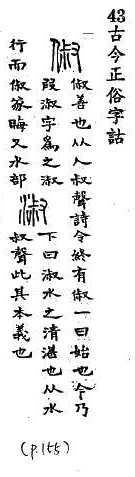 43 古今正俗字詁
俶
俶善也从人叔聲詩令終有俶一曰始也今乃
叚淑字爲之淑
行而俶寖晦又水部
淑
下曰淑水之清湛也从水
叔聲此其本義也
(p.155)